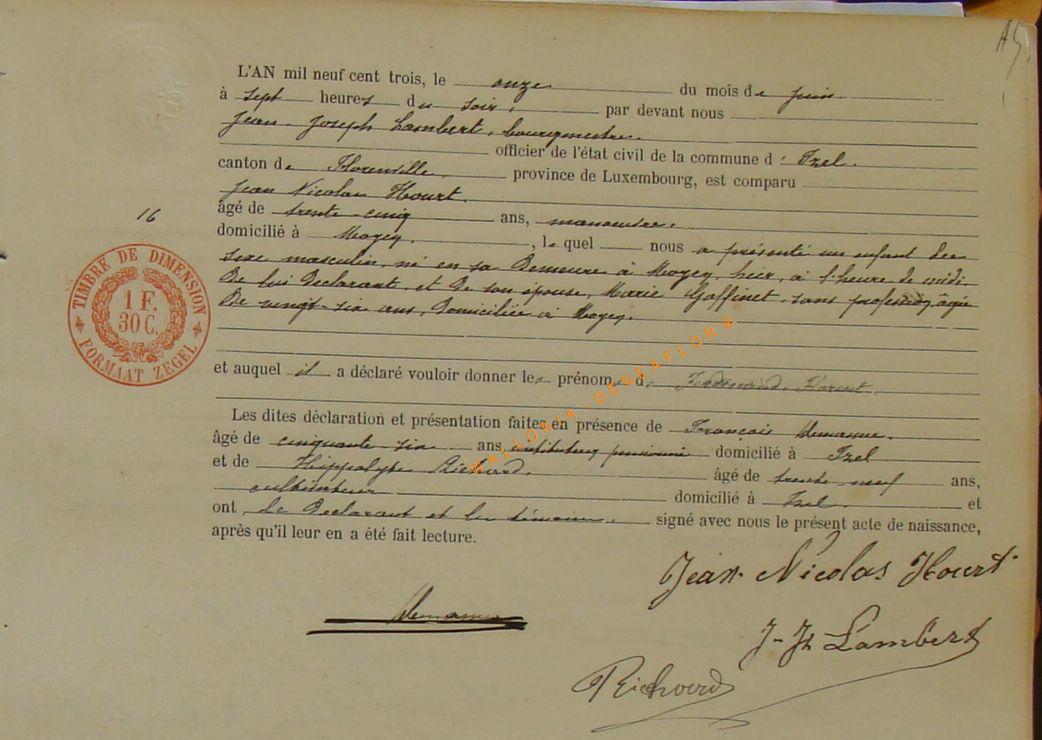 L'AN mil neuf cent trois, le onze du mois de juin
à sept heures du soir, par devant nous
Jean-Joseph Lambert, bourgmestre.
officier de l'état civil de la commune d' Izel.
canton de Florenville, province de Luxembourg, est comparu
Jean Nicolas Hourt.
16
âgé de trente-cinq ans, manoeuvre.
domicilié à Moyen, le quel nous a présenté un enfant du
sexe masculin, né en sa demeure à Moyen, hier, à l'heure de midi.
De lui Déclarant et De son épouse, Marie Goffinet sans profession, âgée
De vingt-six ans, Domiciliée à Moyen.
et auquel il a déclaré vouloir donner les prénoms de Ferdinand Florent.
Les dites déclaration et présentation faites en présence de François
âgé de cinquante-six ans, instituteur pensionné domicilié à Izel
et de Hippolyte Richard. âgé de trente-neuf ans,
cultivateur domicilié à Izel. et
ont le Déclarant et les témoins. signé avec nous le présent acte de naissance,
après qu'il leur en a été fait lecture.
Jean Nicolas Hourt
J-Jh Lambert
Richard
TIMBRE DE DIMENSION
1 F.
30 C.
FORMAAT ZEGEL
WALLONIA GENEAFLOR